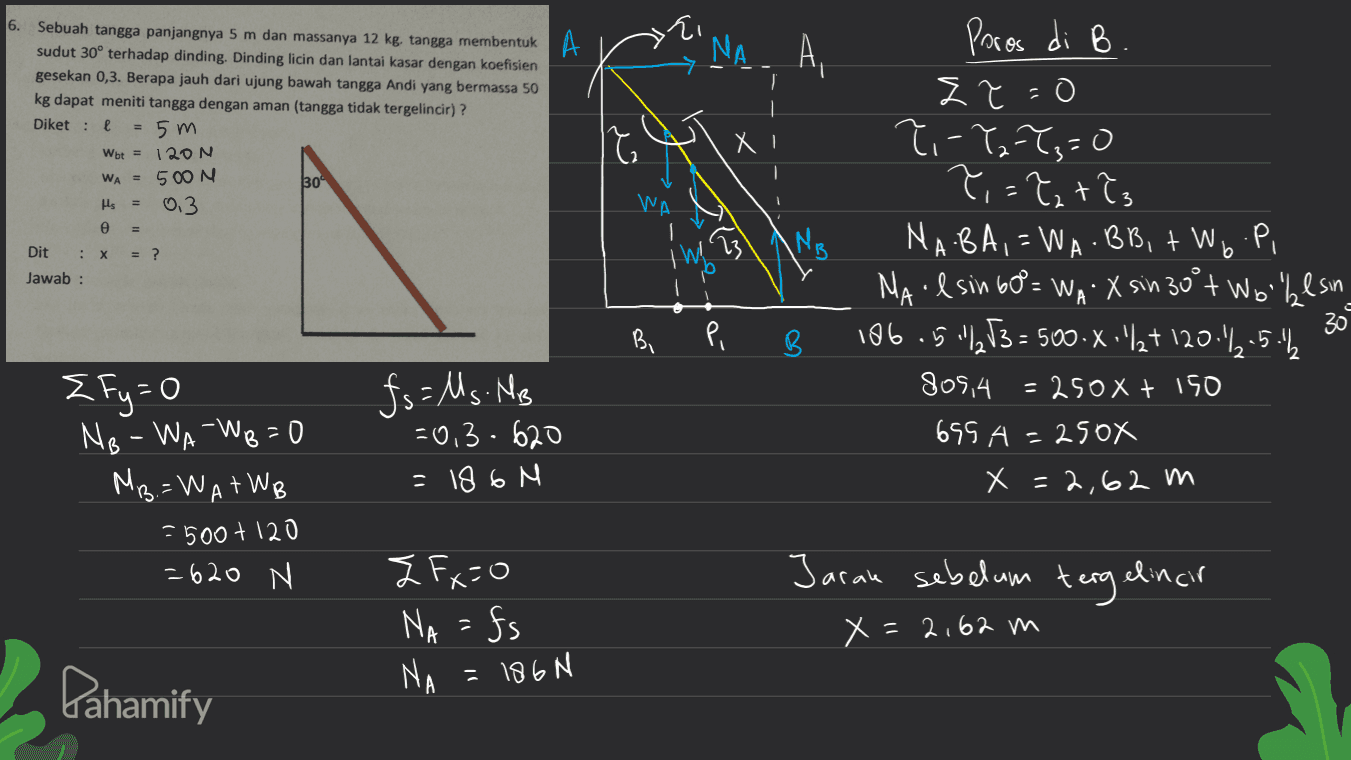 6. Sebuah tangga panjangnya 5 m dan massanya 12 kg. tangga membentuk
sudut 30° terhadap dinding. Dinding licin dan lantai kasar dengan koefisien
gesekan 0,3. Berapa jauh dari ujung bawah tangga Andi yang bermassa 50
kg dapat meniti tangga dengan aman (tangga tidak tergelincir) ?
Diket : ℓ = 5 m
Wbt = 120 N
WA = 500 N
μs = 0,3
θ =
Dit : x = ?
Jawab :
30°
A
τ1
NA
A1
τ2
X
WA
Wb
τ3
NB
B1
P1
B
Poros di B.
Στ = 0
τ1 - τ2 - τ3 = 0
τ1 = τ2 + τ3
NA.BA1 = WA . BB1 + Wb . P1
NA . ℓ sin 60° = WA . X sin 30° + Wb . 1/2 ℓ sin 30°
186 . 5 . 1/2 √3 = 500 . X . 1/2 + 120 . 1/2 . 5 . 1/2
805,4 = 250X + 150
655,4 = 250X
X = 2,62 m
ΣFy = 0
NB - WA - WB = 0
NB = WA + WB
= 500 + 120
= 620 N
fs = μs . NB
= 0,3 . 620
= 186 N
ΣFx = 0
NA = fs
NA = 186 N
Jarak sebelum tergelincir
X = 2,62 m
Pahamify